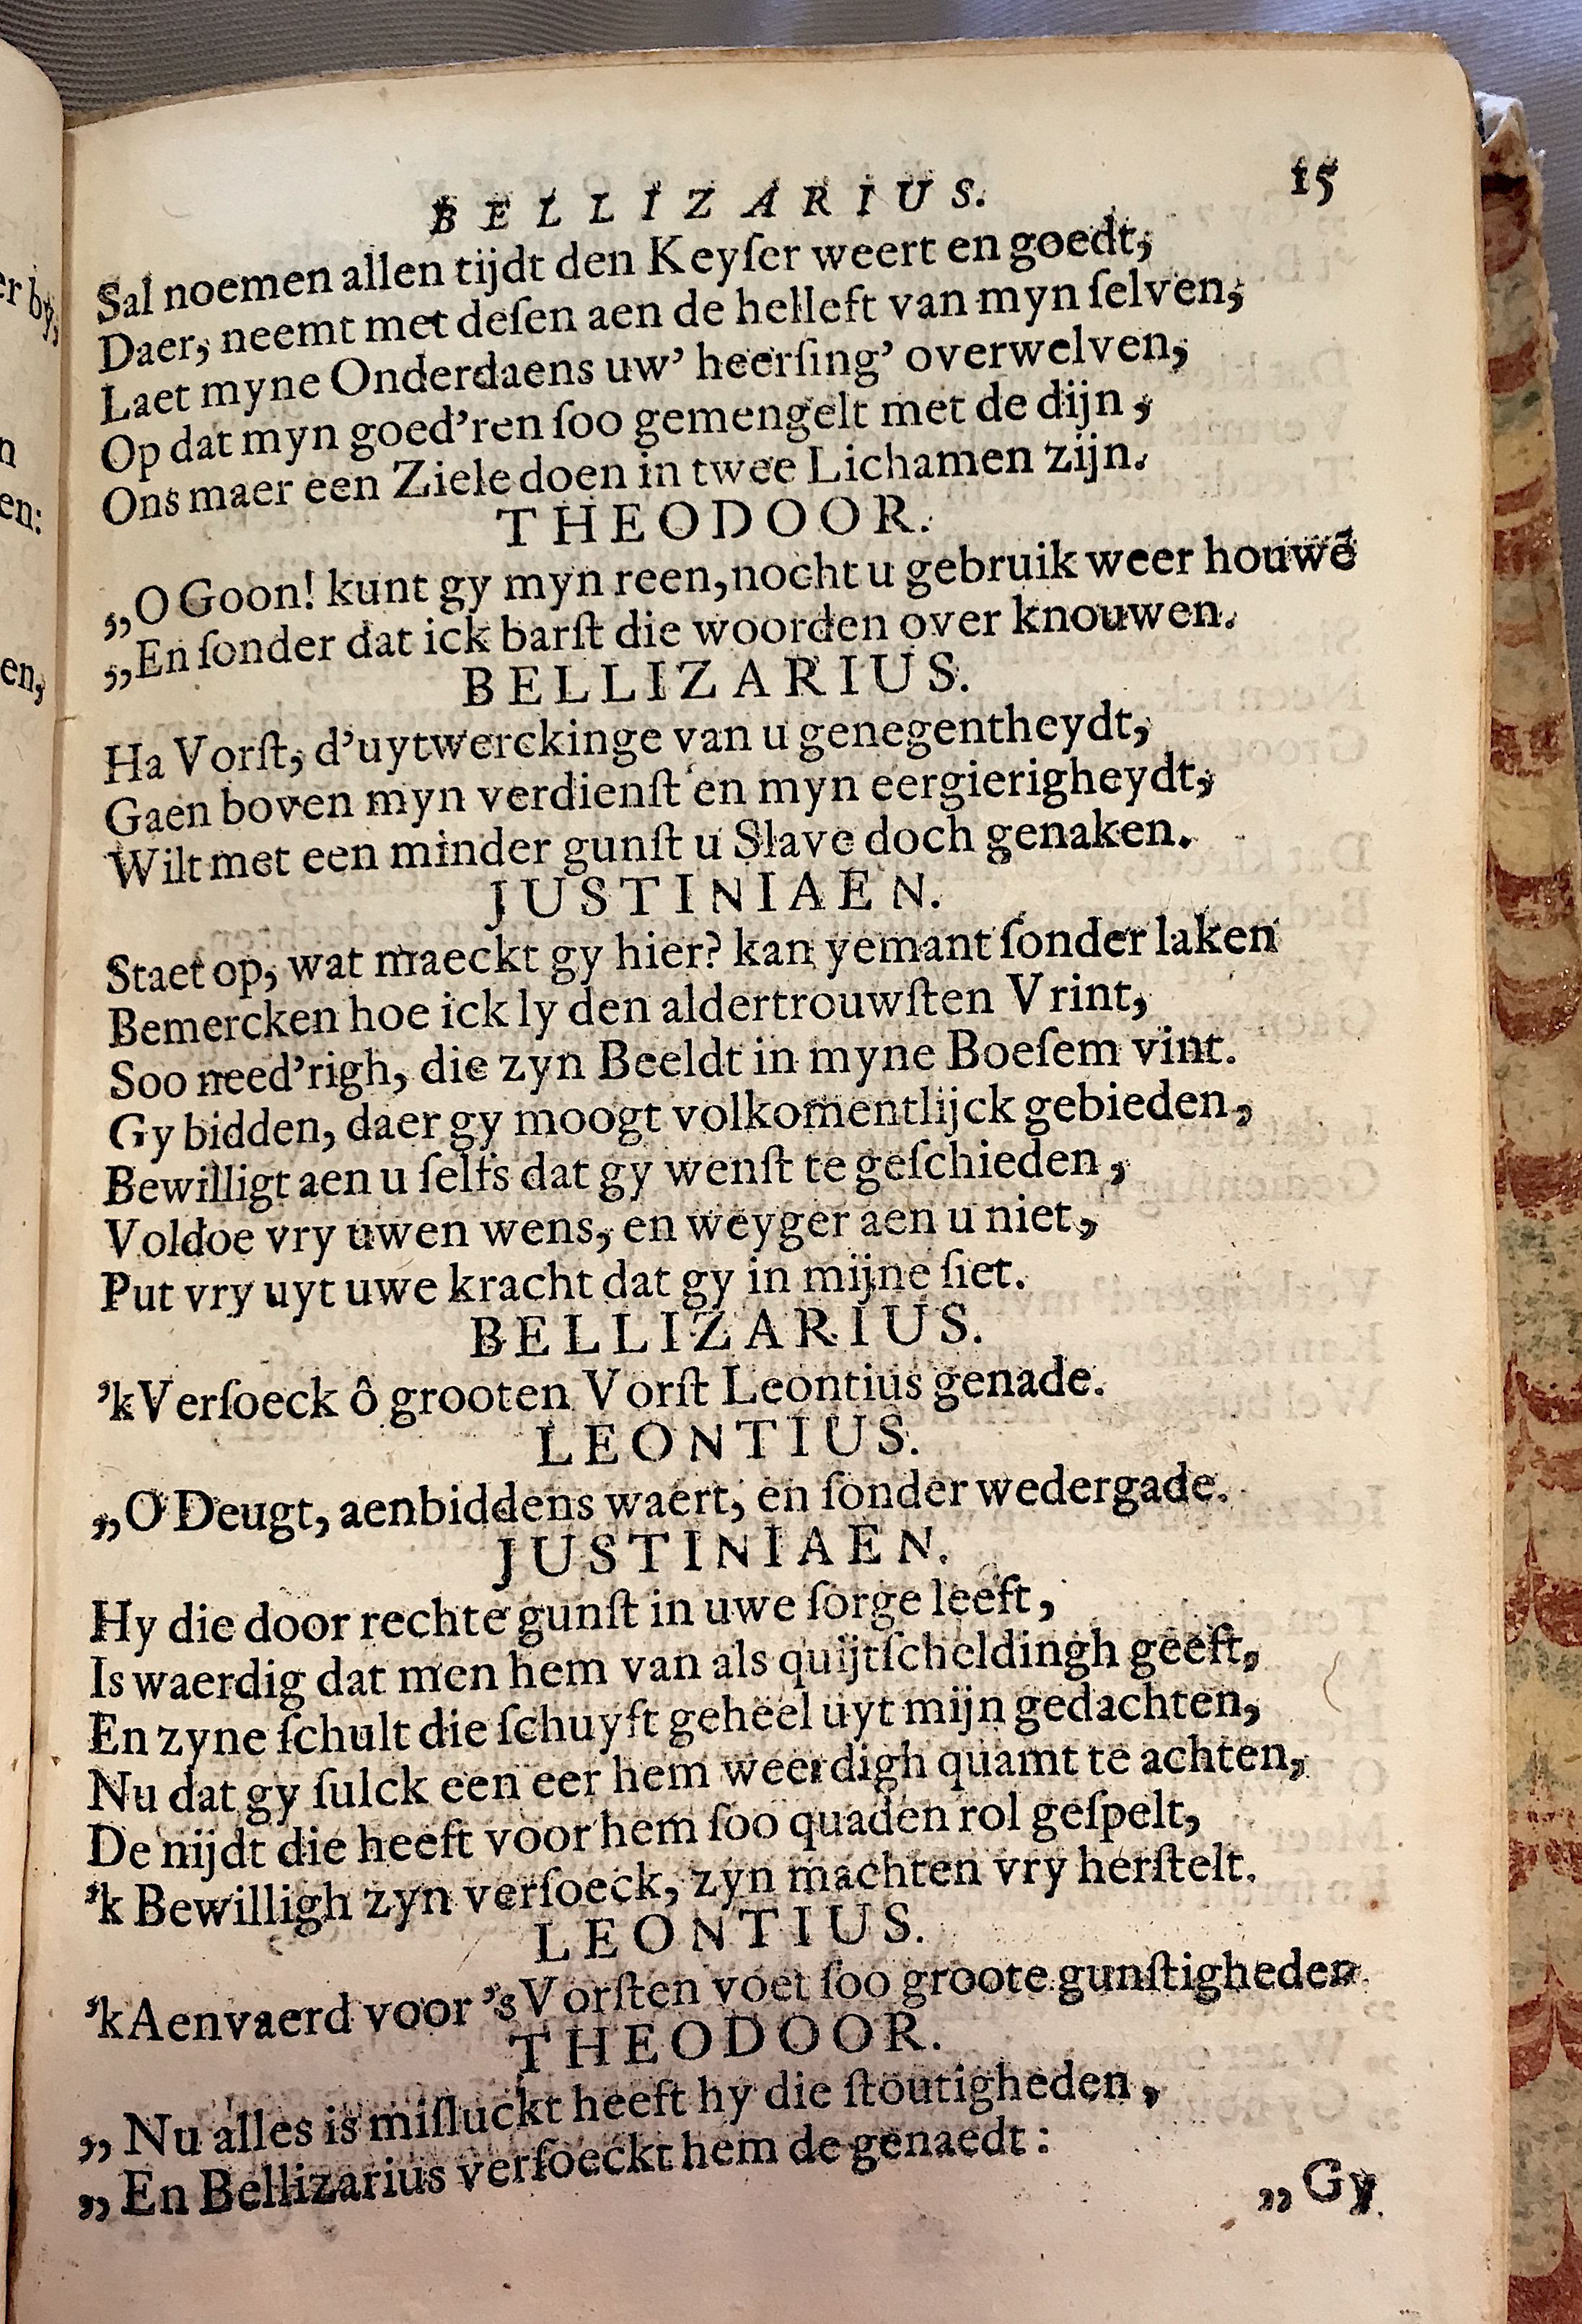 BELLIZARIUS. 15
Sal noemen allen tijdt den Keyſer weert en goedt,
Daer, neemt met deſen aen de helleft van myn ſelven,
Laet myne Onderdaens uw' heerſing' overwelven,
Op dat myn goed'ren ſoo gemengelt met de dijn,
Ons maer een Ziele doen in twee Lichamen zijn.
THEODOOR.
„O Goon! kunt gy myn reen, nocht u gebruik weer houwẽ
„En ſonder dat ick barſt die woorden over knouwen.
BELLIZARIUS.
Ha Vorſt, d'uytwerckinge van u genegentheydt,
Gaen boven myn verdienſt en myn eergierigheydt,
Wilt met een minder gunſt u Slave doch genaken.
JUSTINIAEN.
Staet op, wat maeckt gy hier? kan yemant ſonder laken
Bemercken hoe ick ly den aldertrouwſten Vrint,
Soo need'righ, die zyn Beeldt in myne Boeſem vint.
Gy bidden, daer gy moogt volkomentlijck gebieden,
Bewilligt aen u ſelfs dat gy wenſt te geſchieden,
Voldoe vry uwen wens, en weyger aen u niet,
Put vry uyt uwe kracht dat gy in mijne ſiet.
BELLIZARIUS.
'k Verſoeck ô grooten Vorſt Leontius genade.
LEONTIUS.
„O Deugt, aenbiddens waert, en ſonder wedergade.
JUSTINIAEN.
Hy die door rechte gunſt in uwe ſorge leeft,
Is waerdig dat men hem van als quijtſcheldingh geeft,
En zyne ſchult die ſchuyft geheel uyt mijn gedachten,
Nu dat gy ſulck een eer hem weerdigh quamt te achten,
De nijdt die heeft voor hem ſoo quaden rol geſpelt,
'k Bewilligh zyn verſoeck, zyn machten vry herſtelt.
LEONTIUS.
'k Aenvaerd voor 's Vorſten voet ſoo groote gunſtigheden.
THEODOOR.
„Nu alles is miſluckt heeft hy die ſtoutigheden,
„En Bellizarius verſoeckt hem de genaedt:
„Gy
er by,
n
en:
en,